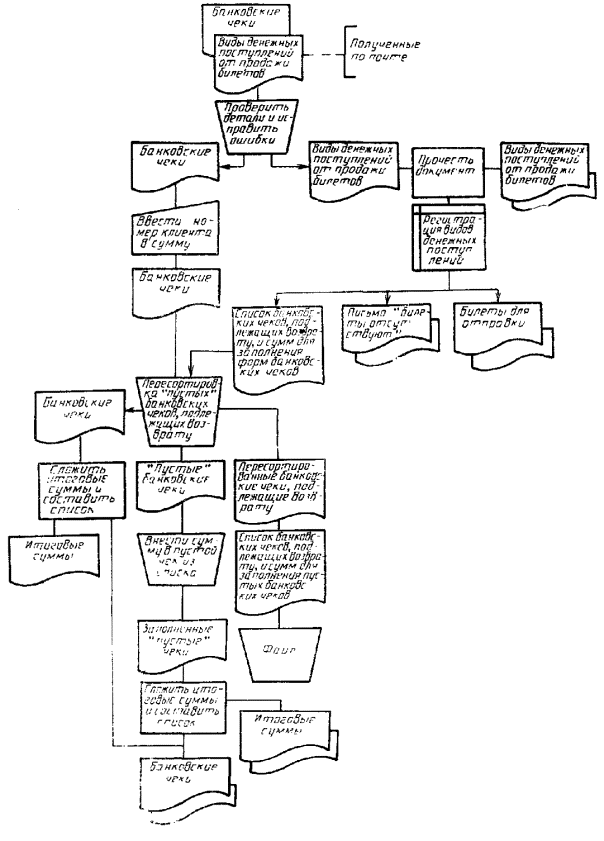 Банковские
чеки
Виды денежных
поступлений
от продажи
билетов
Полученные
по почте
Проверить
детали и ис-
править
ошибки
Банковские
чеки
Виды денежных
поступлений
от продажи
билетов
Прочесть
документ
Виды денежных
поступлений
от продажи
билетов
Ввести но-
мер клиента
в сумму
Регистра-
ция видов
денежных
поступ-
лений
Банковские
чеки
Список банковс-
ких чеков, под-
лежащих возвра-
ту, и сумм для
заполнения
форм банковс-
ких чеков
Письмо "биле-
ты отсут-
ствуют"
Билеты для
отправки
Пересортиров-
ка "пустых"
банковских
чеков, подле-
жащих воз-
врату
Банковские
чеки
Сложить
итоговые
суммы и
составить
список
"Пустые"
банковские
чеки
Пересортиро-
ванные банковс-
кие чеки, под-
лежащие возв-
рату
Итоговые
суммы
Внести сум-
му в пустой
чек из
списка
Список банковс-
ких чеков, под-
лежащих возврату,
и сумм для
заполнения пус-
тых банковс-
ких чеков
Заполненные
"пустые"
чеки
Файл
Сложить ито-
говые суммы
и составить
список
Итоговые
суммы
Банковские
чеки